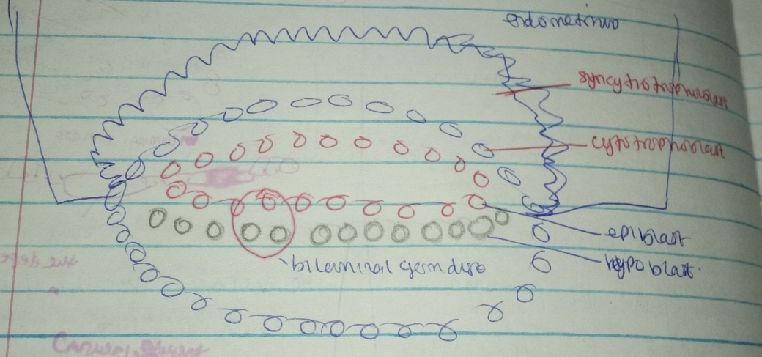 endometrium
syncytotrophoblast
cytotrophoblast
epiblast
hypoblast
bilaminar germ disc